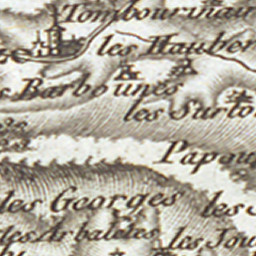 Tombourinair
les Hauber
Barbounes
les Surto
Papou
les Georges
les S
les Arbaletes
les Jou